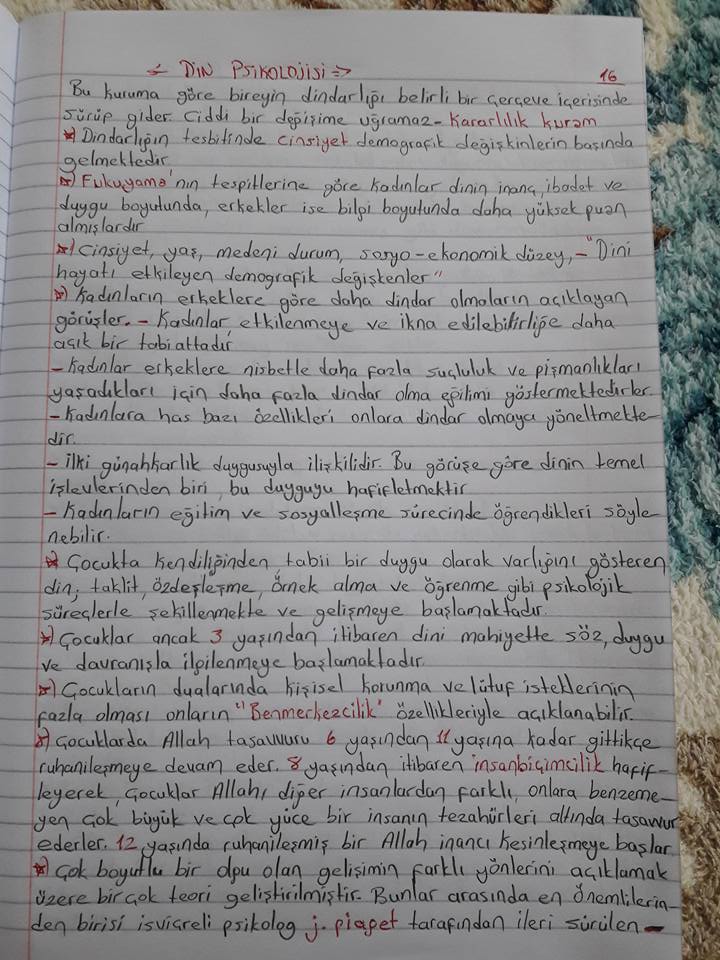 ← DİN PSİKOLOJİSİ → 16
Bu kurama göre bireyin dindarlığı belirli bir çerçeve içerisinde
sürüp gider. Ciddi bir değişime uğramaz - Kararlılık kuram
*) Dindarlığın tesbitinde cinsiyet demografik değişkinlerin başında
gelmektedir.
*) Fukuyama'nın tespitlerine göre kadınlar dinin inanç, ibadet ve
duygu boyutunda, erkekler ise bilgi boyutunda daha yüksek puan
almışlardır
*) Cinsiyet, yaş, medeni durum, sosyo-ekonomik düzey, - "Dini
hayatı etkileyen demografik değişkenler"
*) Kadınların erkeklere göre daha dindar olmaların açıklayan
görüşler. - Kadınlar, etkilenmeye ve ikna edilebilirliğe daha
açık bir tabiattadır
- Kadınlar erkeklere nisbetle daha fazla suçluluk ve pişmanlıkları
yaşadıkları için daha fazla dindar olma eğilimi göstermektedirler.
- Kadınlara has bazı özellikleri onlara dindar olmaya yöneltmekte-
dir.
- İlki günahkarlık duygusuyla ilişkilidir. Bu görüşe göre dinin temel
işlevlerinden biri, bu duyguyu hafifletmektir
- Kadınların eğitim ve sosyalleşme sürecinde öğrendikleri söyle
nebilir.
*) Çocukta kendiliğinden, tabii bir duygu olarak varlığını gösteren
din; taklit, özdeşleşme, örnek alma ve öğrenme gibi psikolojik
süreçlerle şekillenmekte ve gelişmeye başlamaktadır.
*) Çocuklar ancak 3 yaşından itibaren dini mahiyette söz, duygu
ve davranışla ilgilenmeye başlamaktadır.
*) Çocukların dualarında kişisel korunma ve lütuf isteklerinin
fazla olması onların "Benmerkezcilik" özellikleriyle açıklanabilir.
*) Çocuklarda Allah tasavvuru 6 yaşından 11 yaşına kadar gittikçe
ruhanileşmeye devam eder. 8 yaşından itibaren insanbiçimcilik hafif-
leyerek, çocuklar Allahı, diğer insanlardan farklı, onlara benzeme-
yen çok büyük ve çok yüce bir insanın tezahürleri altında tasavvur
ederler. 12 yaşında ruhanileşmiş bir Allah inancı kesinleşmeye başlar
*) Çok boyutlu bir olgu olan gelişimin farklı yönlerini açıklamak
üzere birçok teori geliştirilmiştir. Bunlar arasında en önemlilerin-
den birisi isviçreli psikolog j. piaget tarafından ileri sürülen -